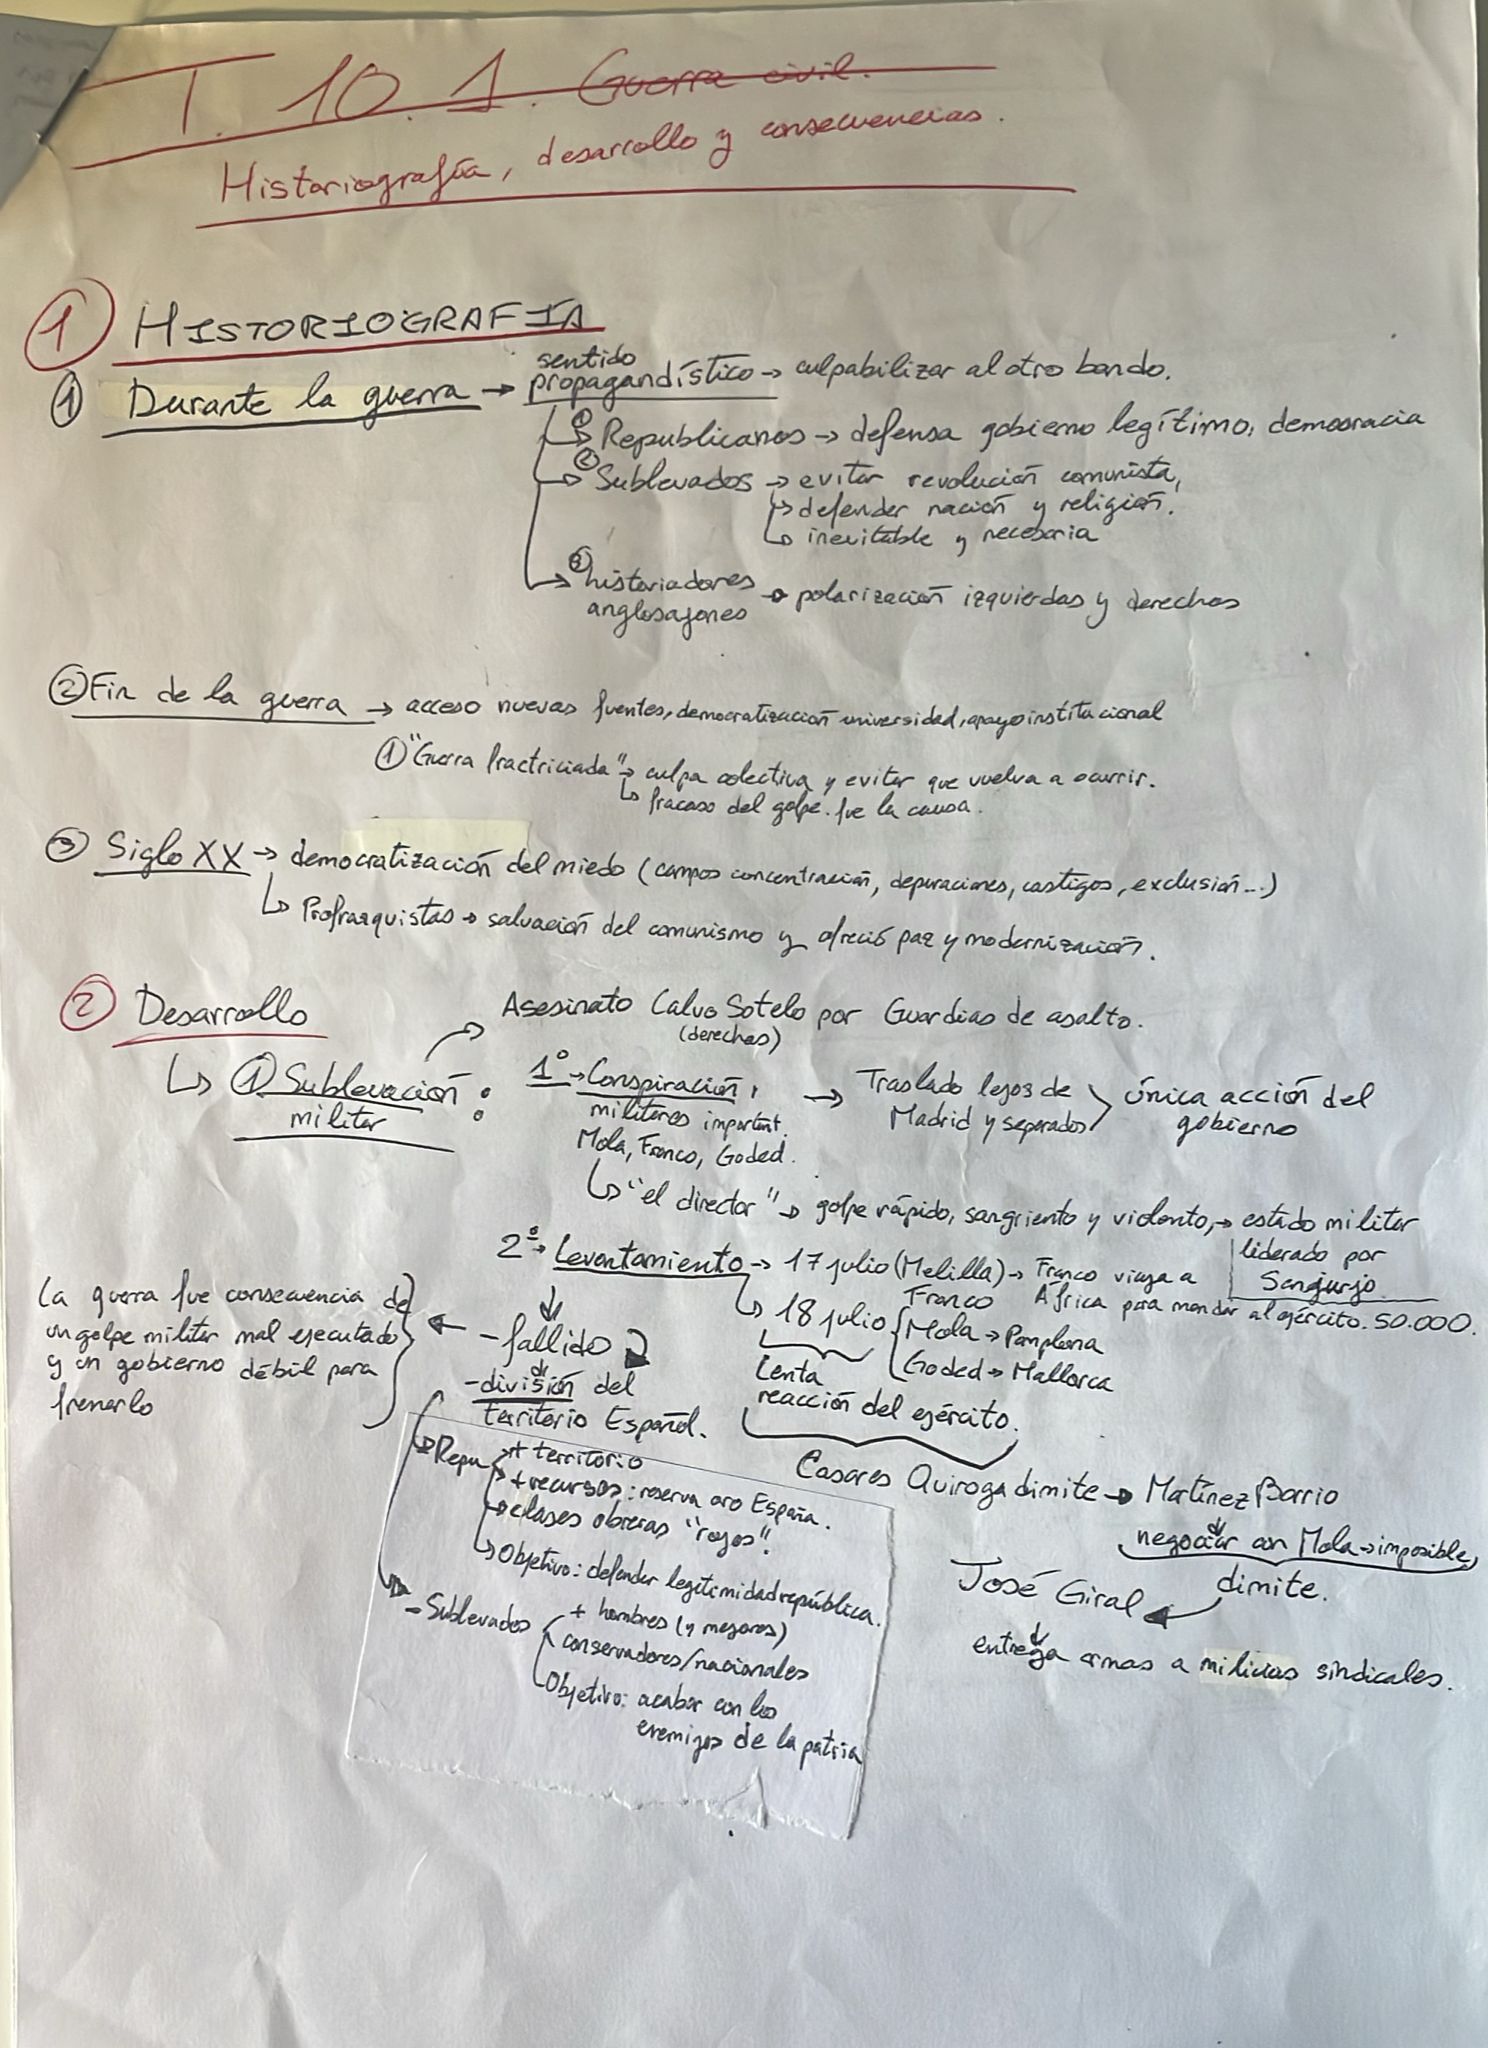 T. 10. 1. Guerra civil.
Historiografía, desarrollo y consecuencias.
1 HISTORIOGRAFIA
1 Durante la guerra → sentido propagandístico → culpabilizar al otro bando.
1 Republicanos → defensa gobierno legítimo, democracia
2 Sublevados → evitar revolución comunista,
→ defender nación y religión.
↳ inevitable y necesaria
3 historiadores anglosajones → polarización izquierdas y derechas
2 Fin de la guerra → acceso nuevas fuentes, democratización universidad, apoyo institucional
1 "Guerra fractriciada" → culpa colectiva y evitar que vuelva a ocurrir.
↳ fracaso del golpe. fue la causa.
3 Siglo XX → democratización del miedo (campos concentración, depuraciones, castigos, exclusión...)
↳ Profraxquistas → salvación del comunismo y ofreció paz y modernización.
2 Desarrollo
Asesinato Calvo Sotelo por Guardias de asalto.
(derechas)
↳ 1 Sublevación militar :
1º → Conspiración,
militares important.
Mola, Franco, Goded.
→ Traslado lejos de
Madrid y separados
única acción del
gobierno
↳ "el director" → golpe rápido, sangriento y violento, → estado militar
liderado por
Sanjurjo
2º → Levantamiento → 17 julio (Melilla) → Franco viaja a
África para mandar al ejército. 50.000.
↳ 18 julio
Franco
Mola → Pamplona
Goded → Mallorca
Lenta
reacción del ejército.
- fallido
La guerra fue consecuencia de
un golpe militar mal ejecutado
y un gobierno débil para
frenarlo
- división del
territorio Español.
Casares Quiroga dimite → Martínez Barrio
negociar con Mola → imposible,
dimite.
José Giral
entrega armas a milicias sindicales.
Repu → + territorio
+ recursos: reserva oro España.
→ clases obreras "rojos".
↳ Objetivo: defender legitimidad república.
- Sublevados
+ hombres (y mejores)
conservadores/nacionales
Objetivo: acabar con los
enemigos de la patria